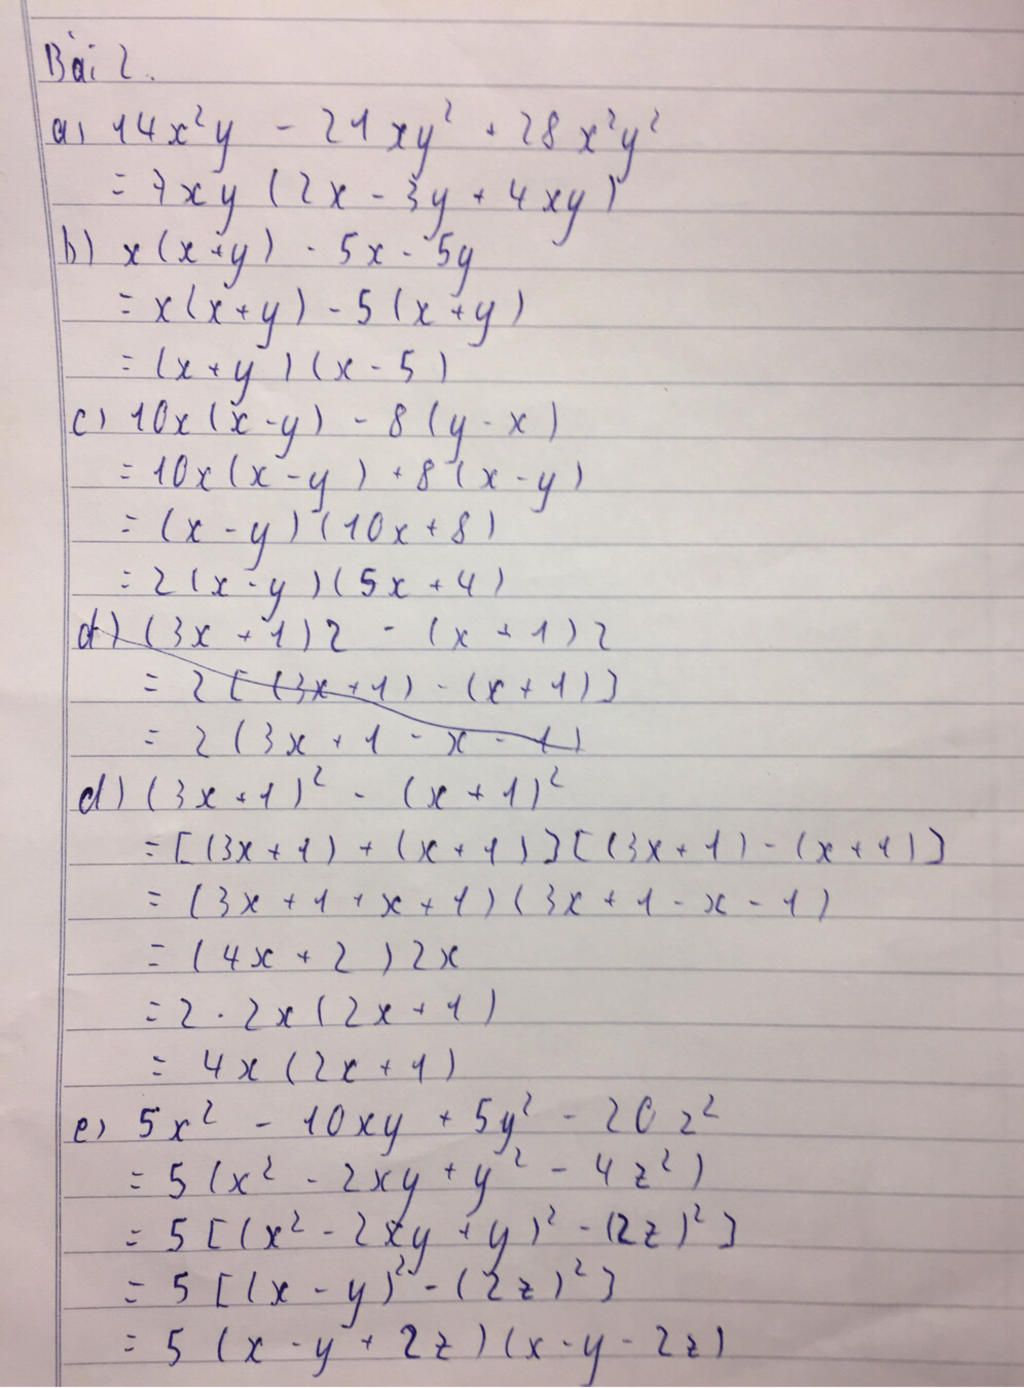 Bài 2.
a) 14x²y - 21xy² + 28x²y²
= 7xy (2x - 3y + 4xy)
b) x(x+y) - 5x - 5y
= x(x+y) - 5(x+y)
= (x+y)(x-5)
c) 10x(x-y) - 8(y-x)
= 10x(x-y) + 8(x-y)
= (x-y)(10x+8)
= 2(x-y)(5x+4)
d) (3x+1)2 - (x+1)2
= 2[(3x+1) - (x+1)]
= 2(3x+1-x-1)
d) (3x+1)² - (x+1)²
= [(3x+1) + (x+1)][(3x+1) - (x+1)]
= (3x+1+x+1)(3x+1-x-1)
= (4x+2)2x
= 2.2x(2x+1)
= 4x(2x+1)
e) 5x² - 10xy + 5y² - 20z²
= 5(x² - 2xy + y² - 4z²)
= 5[(x² - 2xy + y)² - (2z)²]
= 5[(x-y)² - (2z)²]
= 5(x-y+2z)(x-y-2z)